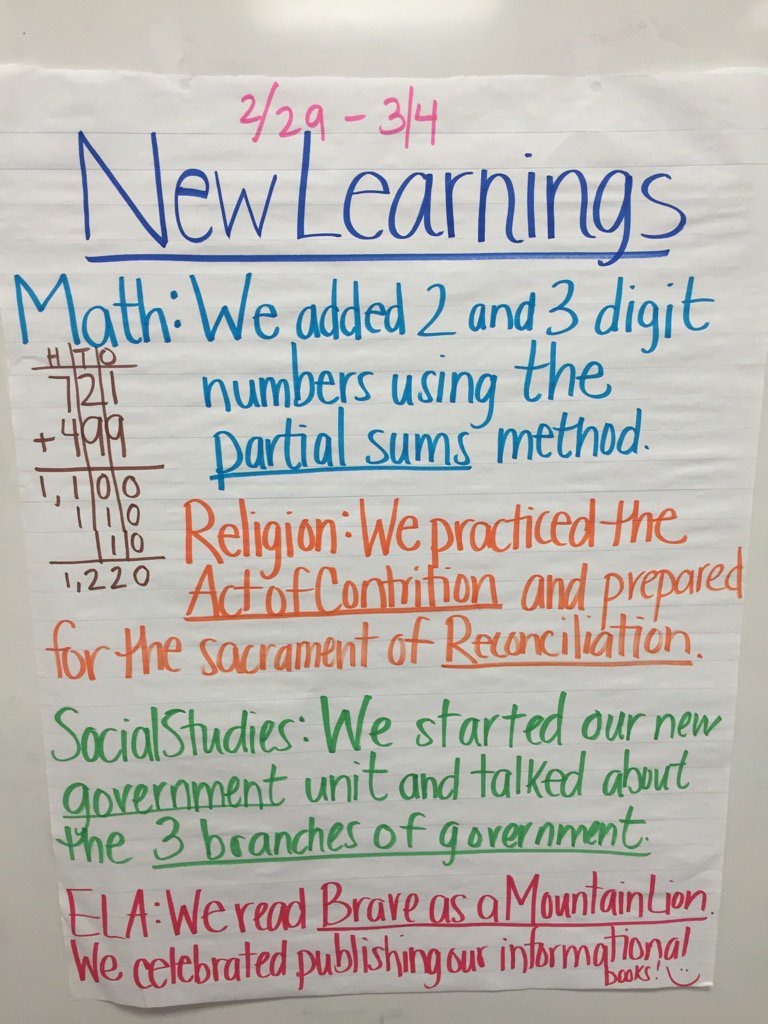 2/29 - 3/4
New Learnings
Math: We added 2 and 3 digit
numbers using the
partial sums method.
H T O
721
+499
1,100
110
10
1,220
Religion: We practiced the
Act of Contrition and prepared
for the sacrament of Reconciliation.
Social Studies: We started our new
government unit and talked about
the 3 branches of government.
ELA: We read Brave as a Mountain Lion.
We celebrated publishing our informational
books!